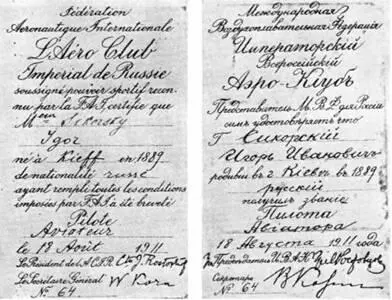 Fédération
Aéronautique Internationale
L'Aéro Club
Impérial de Russie
soussigné pouvoir sportif recon-
nu par la F.A.I. certifie que
M eur Sikorsky
Igor
né à Kieff en 1889
de nationalité russe
ayant remplie toutes les conditions
imposées par F.A.I. a été breveté
Pilote
Aviateur
le 18 Août 1911
Le President del'A.C.R.
Le Secrétaire Général
No 64
Международная
Воздухоплавательная Федерація
Императорскій
Всероссійскій
Аэро-Клубъ
Представитель М.В.Ф. для Россіи
симъ удостоверяетъ что
Г Сикорскій
Игорь Ивановичъ
родивш въ г Кіевѣ въ 1889
русскій
получилъ званіе
Пилота
Авіатора
18 Августа 1911 года
Предсѣдатель И.В.А.К.
Секретарь
No 64